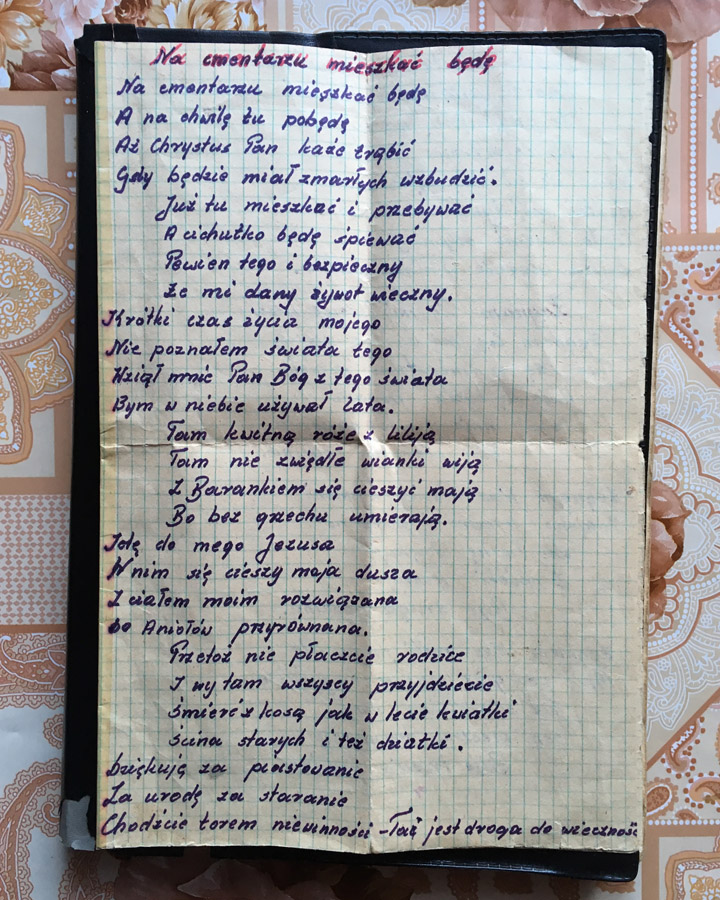 Na cmentarzu mieszkać będę
Na cmentarzu mieszkać będę
A na chwilę tu pobędę
Aż Chrystus Pan każe trąbić
Gdy będzie miał zmarłych wzbudzić.
Już tu mieszkać i przebywać
A cichutko będę śpiewać
Pewien tego i bezpieczny
Że mi dany żywot wieczny.
Krótki czas życia mojego
Nie poznałem świata tego
Wziął mnie Pan Bóg z tego świata
Bym w niebie używał lata.
Tam kwitną róże z liliją
Tam nie zwiędłe wianki wiją
Z Barankiem się cieszyć mają
Bo bez grzechu umierają.
Idę do mego Jezusa
W nim się cieszy moja dusza
Z ciałem moim rozwiązana
Do Aniołów przyrównana.
Przetoż nie płaczcie rodzice
I wy tam wszyscy przyjdziecie
Śmierć z kosą jak w lecie kwiatki
Ścina starych i też dziatki.
Dziękuję za piastowanie
Za urodę za staranie
Chodźcie torem niewinności - Taż jest droga do wieczności